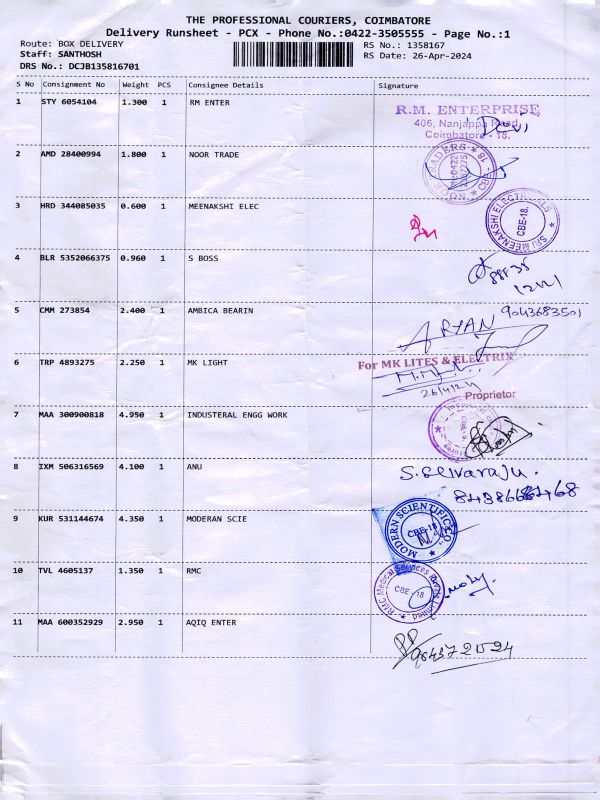 THE PROFESSIONAL COURIERS, COIMBATORE
Delivery Runsheet - PCX - Phone No.:0422-3505555 - Page No.:1
Route: BOX DELIVERY
Staff: SANTHOSH
DRS No.: DCJB135816701
RS No.: 1358167
RS Date: 26-Apr-2024
S No Consignment No Weight PCS Consignee Details Signature
1 STY 6054104 1.300 1 RM ENTER
R.M. ENTERPRISE
406, Nanjappa Road,
Coimbatore - 18.
Devi
2 AMD 28400994 1.800 1 NOOR TRADE
3 HRD 344085035 0.600 1 MEENAKSHI ELEC
SRI MEENAKSHI ELECTRICALS
CBE-18.
4 BLR 5352066375 0.960 1 S BOSS
5 CMM 273854 2.400 1 AMBICA BEARIN
9043683501
ARYAN
6 TRP 4893275 2.250 1 MK LIGHT
For MK LITES & ELECTRIX
26/4/24
Proprietor
7 MAA 300900818 4.950 1 INDUSTERAL ENGG WORK
8 IXM 506316569 4.100 1 ANU
S. Selvaraju.
9 KUR 531144674 4.350 1 MODERAN SCIE
MODERN SCIENTIFIC CO
CBE-18
10 TVL 4605137 1.350 1 RMC
RMC Medical Services Limited
CBE - 18
11 MAA 600352929 2.950 1 AQIQ ENTER